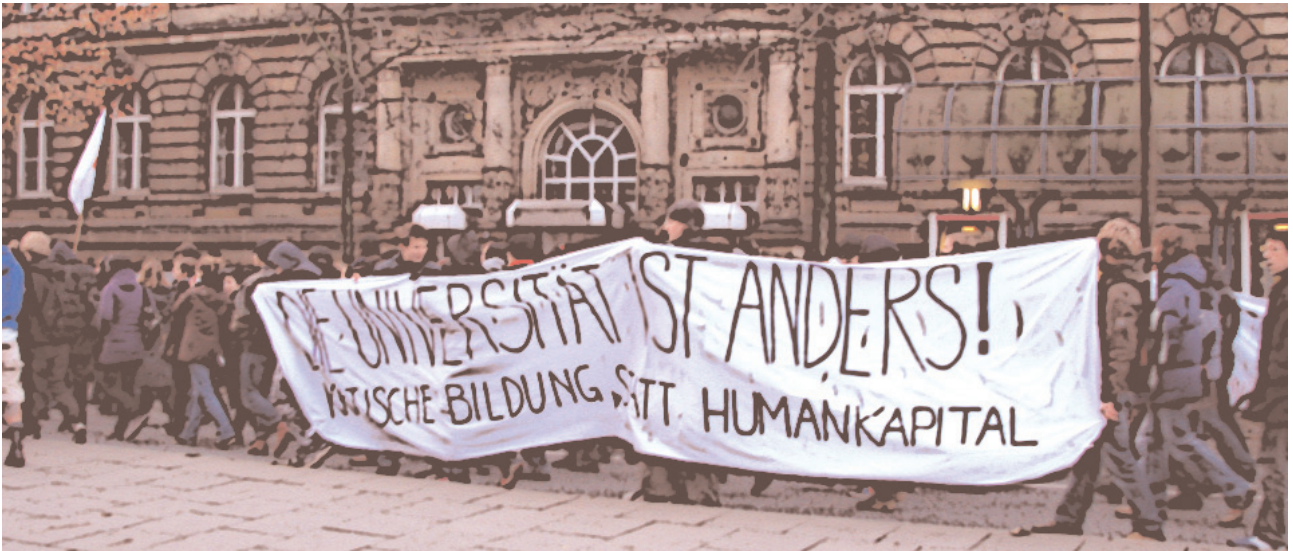 DIE UNIVERSITÄT IST ANDERS!
KRITISCHE BILDUNG STATT HUMANKAPITAL